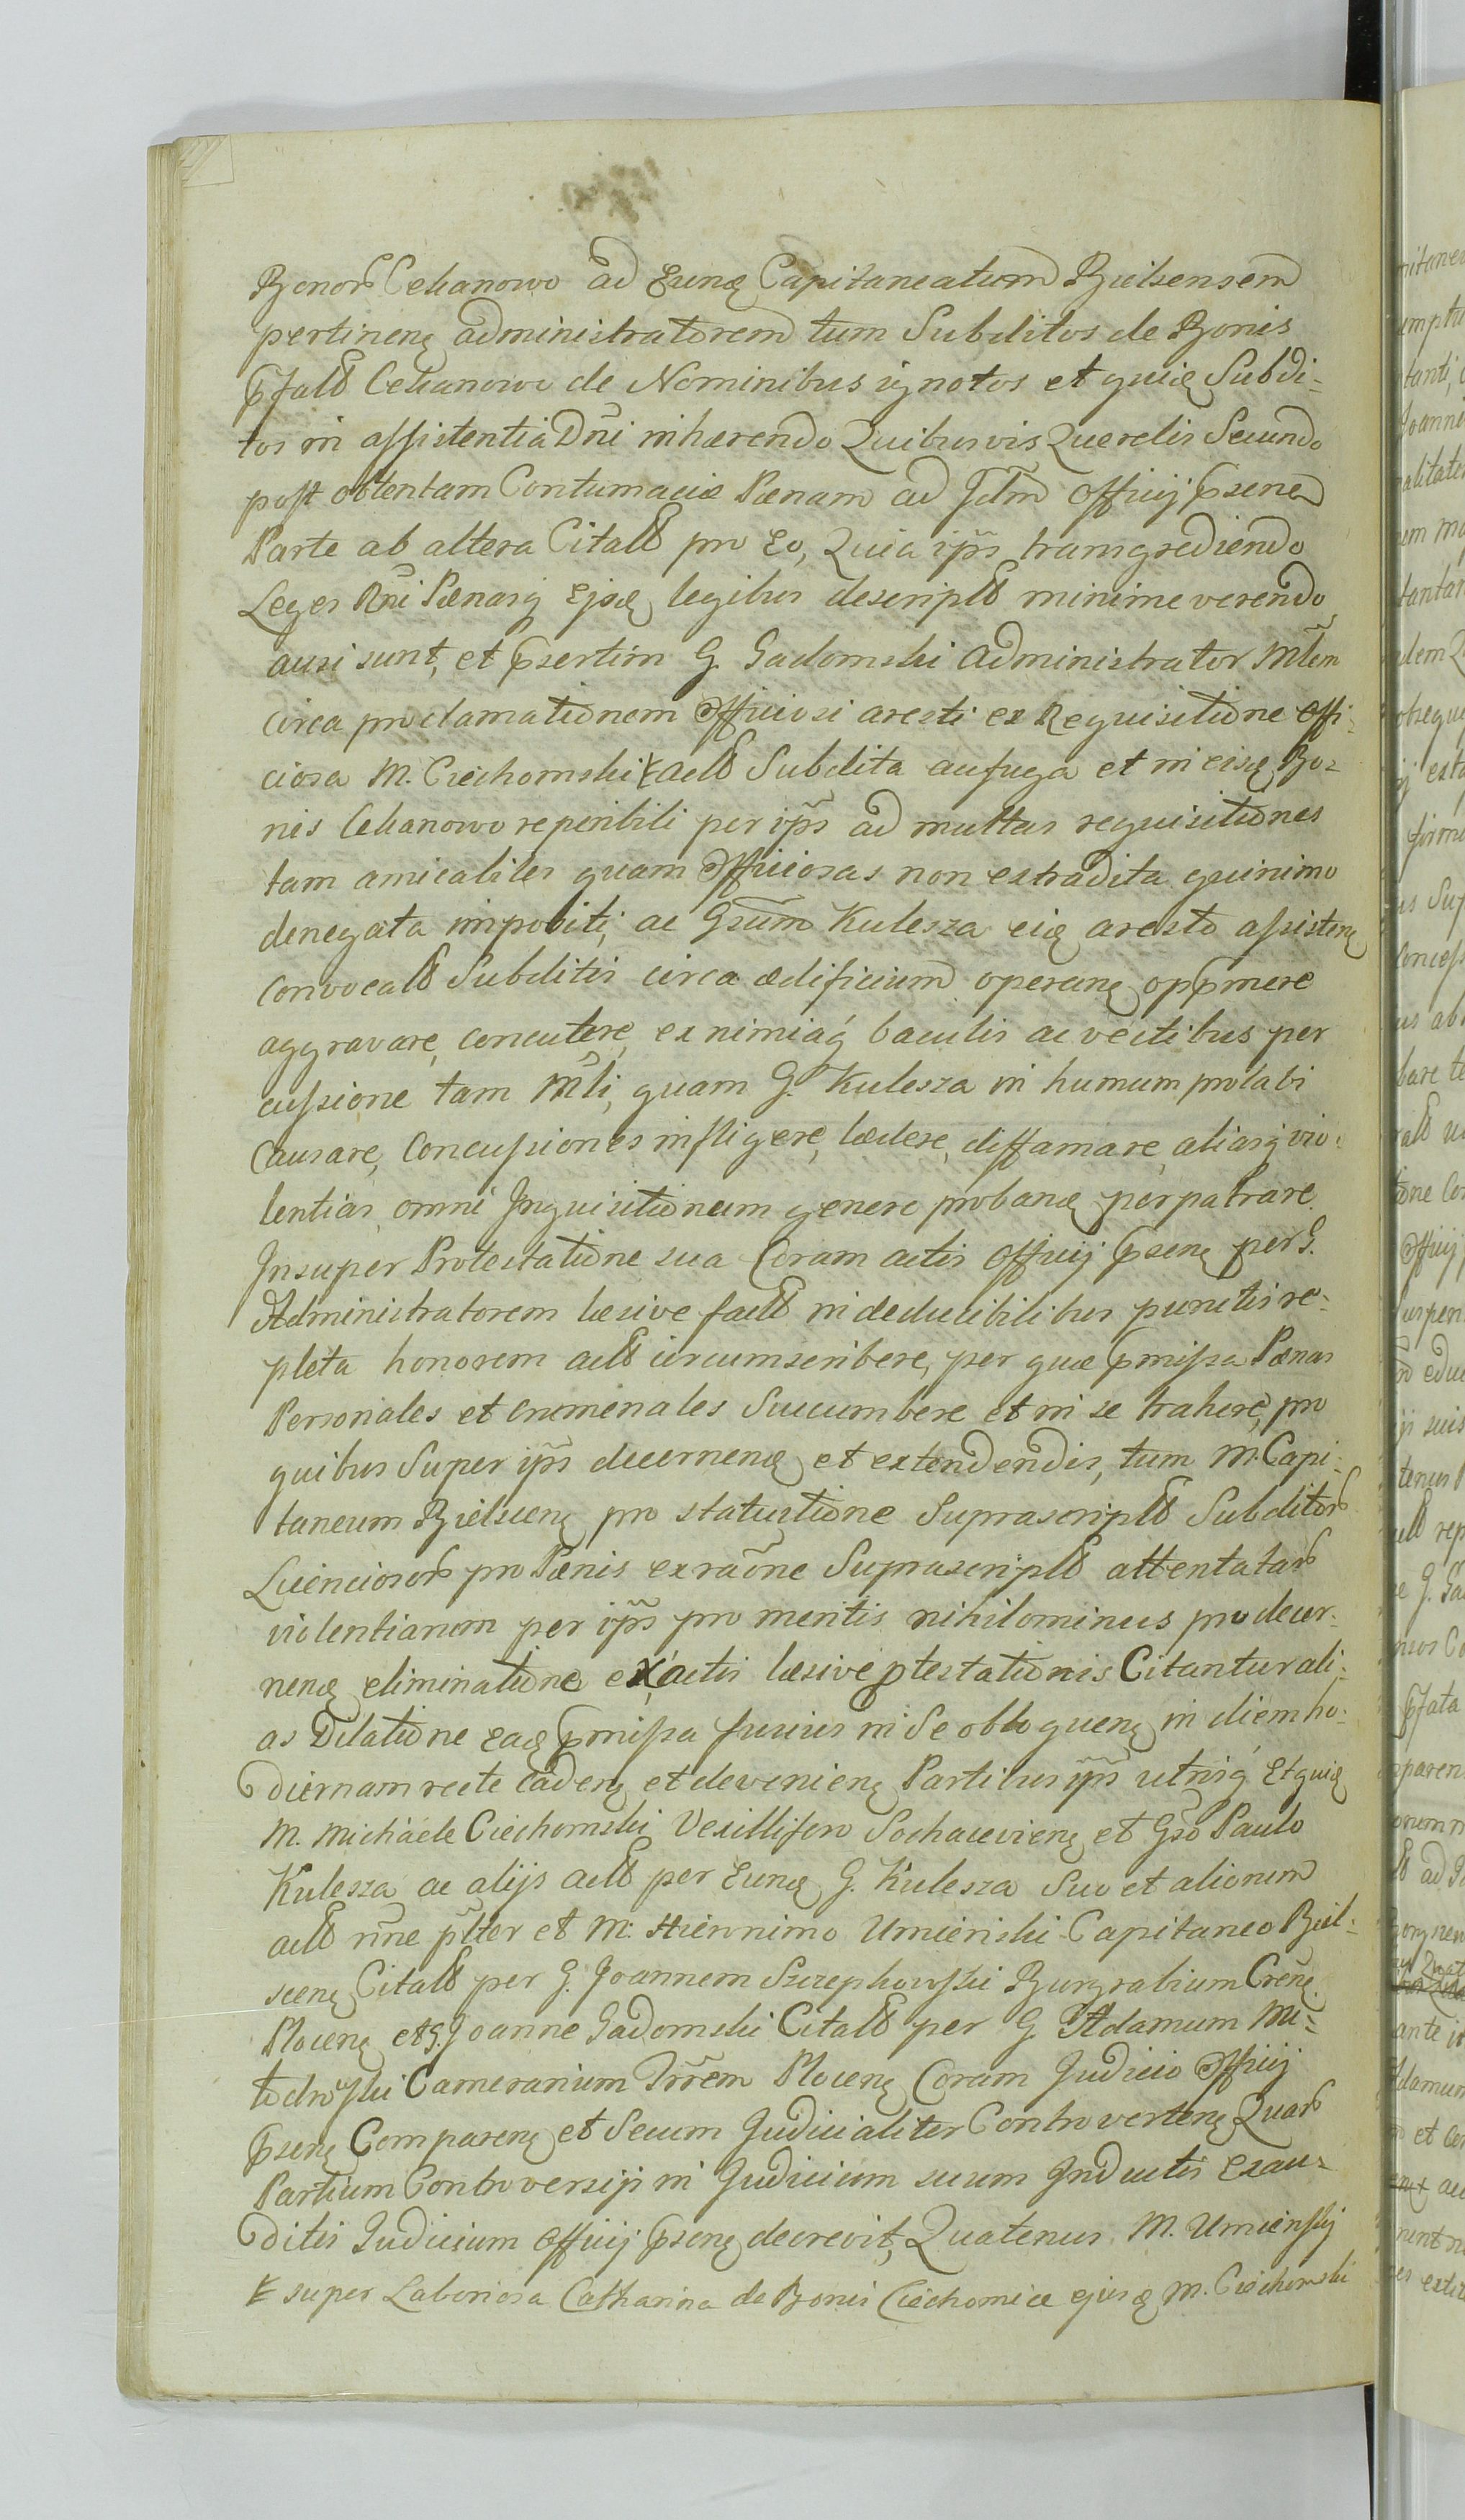 Bonor Cekanowo ad Eund Capitaneatum Bielsensem
pertinen administratorem tum Subditos de Bonis
pfatt Cekanowo de Nominibus ignotos et quid Subdi-
tos in assistentia Dni inhærendo Quibusvis Querelis Secundo
post obtentam Contumaciæ Pœnam ad Jdm officij psenen
Parte ab altera Citatt pro Eo, Quia ips transgrediendo
Leges Rni Pœnasq Ejsd legibus descriptt minime verendo
ausi sunt, et psertim G. Gadomski Administrator Mlem
circa proclamationem officiosi aresti ex Requisitione offi-
ciosa M. Ciechomski # actt Subdita aufuga et in eisd Bo-
nis Cekanowo reperibili per ips ad multas requisitiones
tam amicabiles quam officiosas non extradita quinimo
denegata impositi, ac Gsum Kulesza eid aresto assisten
convocatt Subditis circa ædificium operan oppmere
aggravare, concutere, ex nimiaq baculis ac vectibus per
cussione tam Mli, quam G. Kulesza in humum prolabi
Causare, Concussiones infligere, lædere, diffamare, aliasq vio-
lentias omni Jnquisitionum genere proband perpatrare.
Jnsuper Protestatione sua Coram actis officij psen per G.
Administratorem læsive factt indeducibilibus punctis re-
pleta honorem actt circumscribere, per quæ pmissa Pænas
Personales et criminales Succumbere et in se trahere, pro
quibus Super ips decernend et extendendis, tum M. Capi-
taneum Bielscen pro statuitione Suprascriptt Subditor
Licenciosor pro Pænis exraone Suprascriptt attentatar
violentiarum per ips pro meritis nihilominus pro decer-
nend eliminatione ex actis læsive ptestationis Citantur ali-
as Dilatione ead pmissa fusius in Se obloquen in diem ho-
diernam recte Caden et devenien Partibus ips utrisq Et quid
M. Michaele Ciechomski Vexillifero Sochaczevien et Gso Paulo
Kulesza ac alijs actt per Eund G. Kulesza Suo et aliorum
actt nne plter et M. Hieronimo Umienski Capitaneo Biel-
scen Citatt per G. Joannem Szczepkowski Burgrabium Cren
Plocen et G. Joanne Gadomski Citatt per G Adamum Mi-
todrowski Camerarium Trrem Plocen Coram Judicio officij
psen Comparen et Secum Judicialiter Controverten Quar
Partium Controversijs in Judicium suum Jnductis Exau-
ditis Judicium officij psen decrevit, Quatenus M. Umienskj
# super Laboriosa Catharina de Bonis Ciechomice ejusd M. Ciechomski